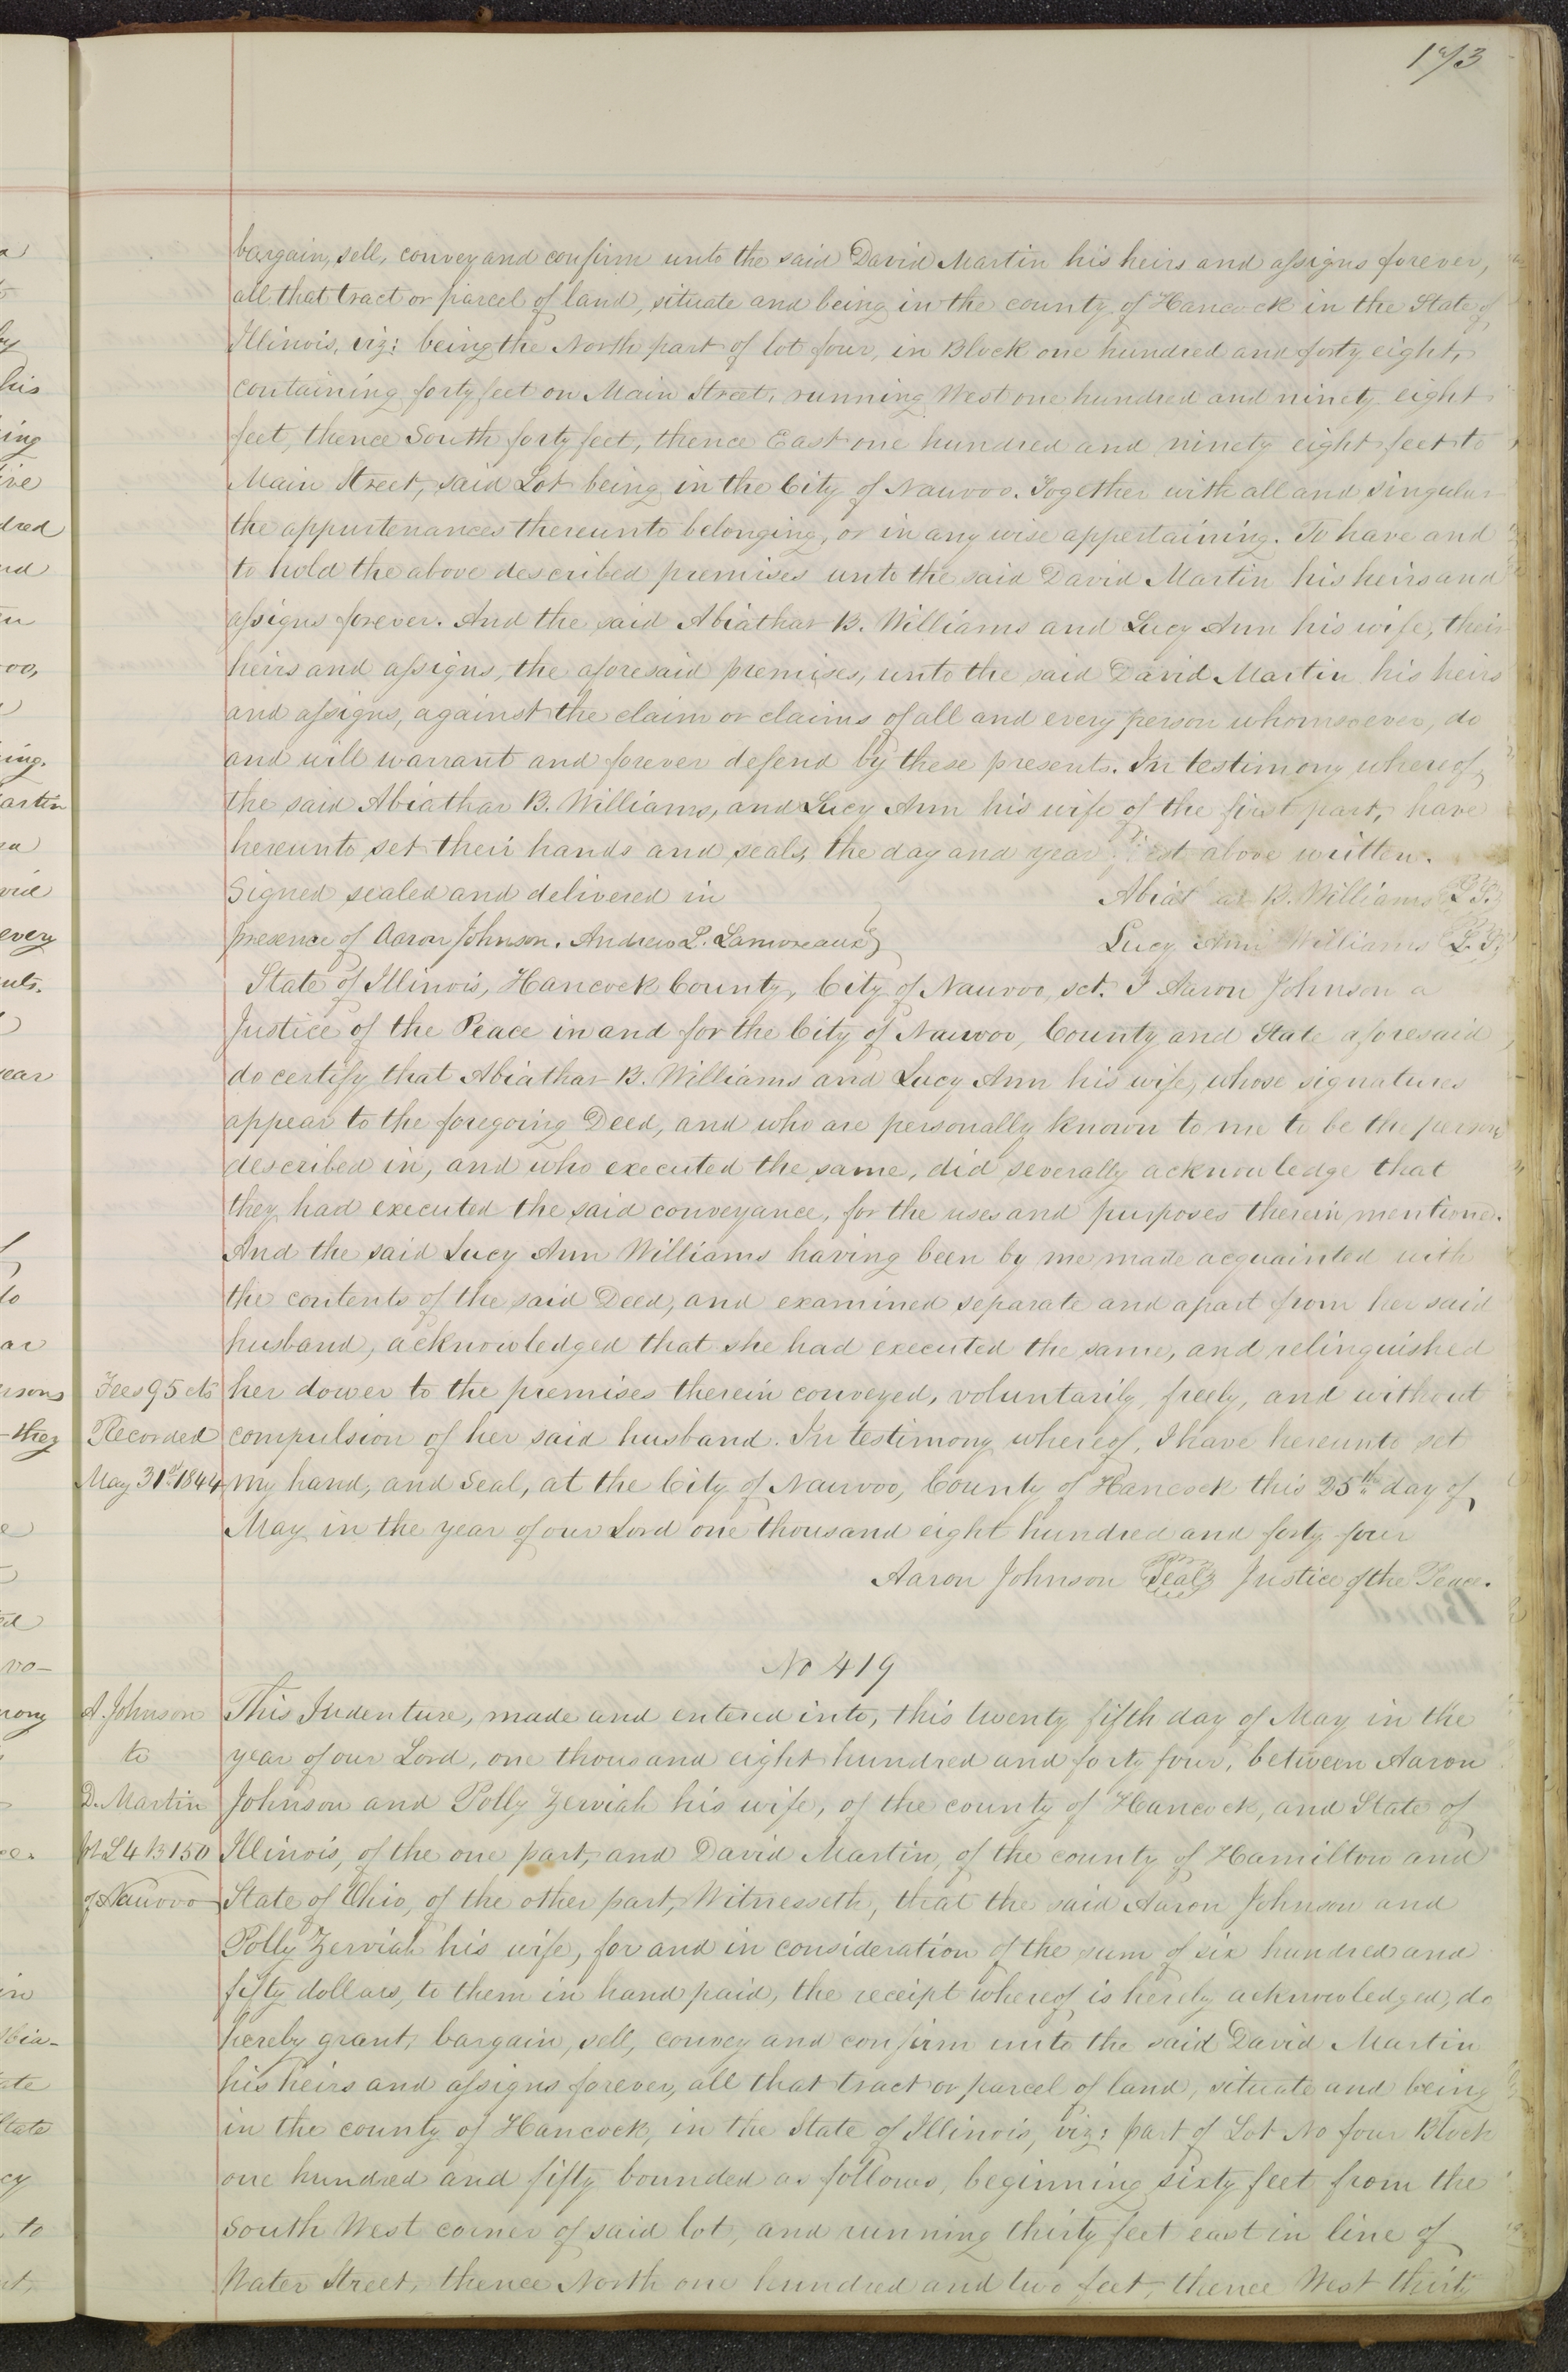 173
bargain, sell, convey and confirm unto the said David Martin his heirs and assigns forever,
all that tract or parcel of land, situate and being in the county of Hancock in the State of
Illinois, viz: being the North part of lot four, in Block one hundred and forty eight,
containing forty feet on Main Street, running West one hundred and ninety eight
feet, thence South forty feet, thence East one hundred and ninety eight feet to
Main Street, said Lot being in the City of Nauvoo. Together with all and singular
the appurtenances thereunto belonging, or in any wise appertaining. To have and
to hold the above described premises unto the said David Martin his heirs and
assigns forever. And the said Abiathar B. Williams and Lucy Ann his wife, their
heirs and assigns, the aforesaid premises, unto the said David Martin his heirs
and assigns, against the claim or claims of all and every person whomsoever, do
and will warrant and forever defend by these presents. In testimony whereof,
the said Abiathar B. Williams, and Lucy Ann his wife of the first part, have
hereunto set their hands and seals, the day and year first above written.
Signed sealed and delivered in Abiathar B. Williams L.S.
presence of Aaron Johnson. Andrew L. Lamoreaux Lucy Ann Williams L.S.
State of Illinois, Hancock County, City of Nauvoo, sct. I Aaron Johnson a
Justice of the Peace in and for the City of Nauvoo, County and State aforesaid
do certify that Abiathar B. Williams and Lucy Ann his wife, whose signatures
appear to the foregoing Deed, and who are personally known to me to be the person
described in, and who executed the same, did severally acknowledge that
they had executed the said conveyance, for the uses and purposes therein mentione.
And the said Lucy Ann Williams having been by me made acquainted with
the contents of the said Deed, and examined separate and apart from her said
husband, acknowledged that she had executed the same, and relinquished
Fees 95 cts her dower to the premises therein conveyed, voluntarily, freely, and without
Recorded compulsion of her said husband. In testimony whereof, I have hereunto set
May 31st 1844 my hand, and Seal, at the City of Nauvoo, County of Hancock this 25th day of
May in the year of our Lord one thousand eight hundred and forty four
Aaron Johnson Seal Justice of the Peace.
No 419
A. Johnson This Indenture, made and entered into, this twenty fifth day of May in the
to year of our Lord, one thousand eight hundred and forty four, between Aaron
D. Martin Johnson and Polly Zerviah his wife, of the county of Hancock, and State of
pt L 4 B 150 Illinois, of the one part, and David Martin, of the county of Hamilton and
of Nauvoo State of Ohio, of the other part, Witnesseth, that the said Aaron Johnson and
Polly Zerviah his wife, for and in consideration of the sum of six hundred and
fifty dollars, to them in hand paid, the receipt whereof is hereby acknowledged, do
hereby grant, bargain, sell, convey and confirm unto the said David Martin
his heirs and assigns forever, all that tract or parcel of land, situate and being
in the county of Hancock, in the State of Illinois, viz: part of Lot No four Block
one hundred and fifty bounded as follows, beginning sixty feet from the
South West corner of said lot, and running thirty feet east in line of
Water Street, thence North one hundred and two feet, thence West thirty